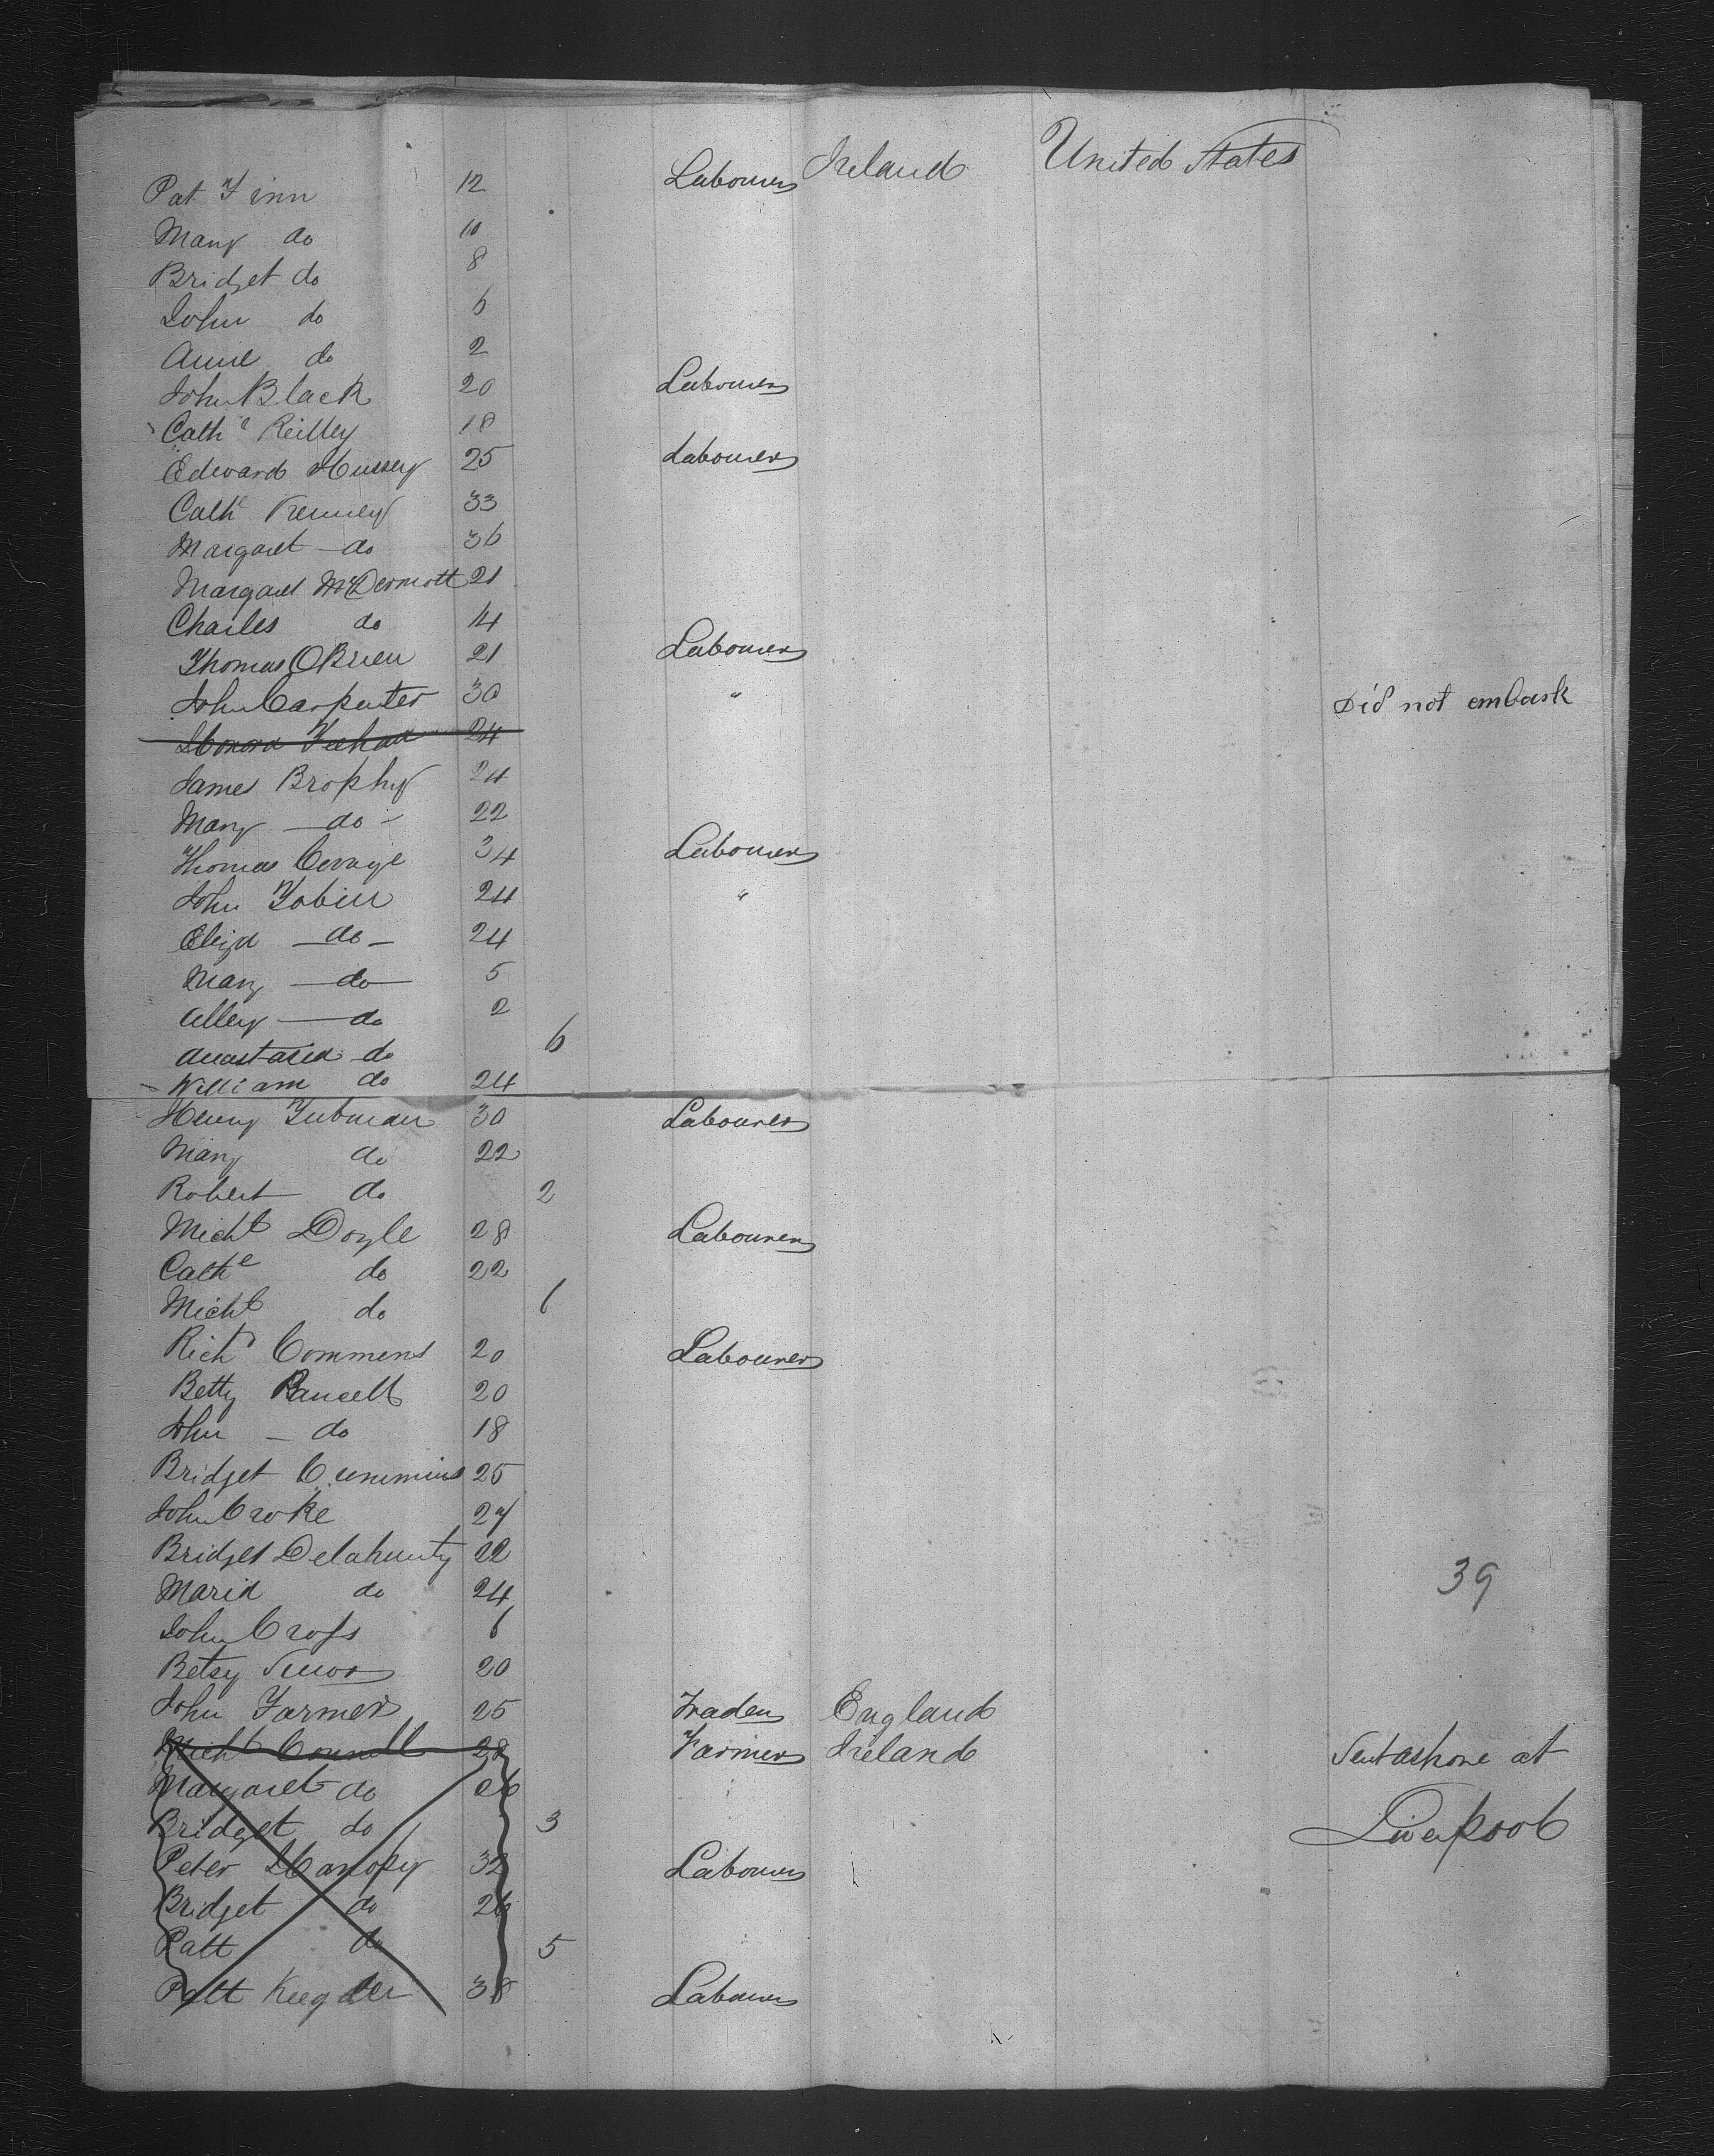 Pat Finn 12 Labourer Ireland United States
Mary do 10
Bridget do 8
John do 6
Annie do 2
John Black 20 Labourer
Cathe Reilley 18
Edward Hussey 25 Labourer
Cathe Kenney 33
Margaret do 36
Margaret McDermott 21
Charles do 14
Thomas OBrien 21 Labourer
John Carpenter 30 " Did not embark
Honora Feehan 24
James Brophy 24
Mary do 22
Thomas 34 Labourer
John Tobin 24 "
Eliza do 24
Mary do 5
Alley do 2
Anastasia do 6
William do 24
Henry Tubman 30 Labourer
Mary do 22
Robert do 2
Michl Doyle 28 Labourer
Cathe do 22
Michl do 6
Richd Commens 20 Labourer
Betty 20
John do 18
Bridget Cummins 25
John Croke 27
Bridget Delahunty 22
Maria do 24 39
John Cross 6
Betsy 20
John Farmer 25 Trader England
Michl Connell 28 Farmer Ireland Sent ashore at
Margaret do 26
Bridget do 3 Liverpool
Peter 32 Labourer
Bridget do 26
Patt do 5
Patt 38 Labourer